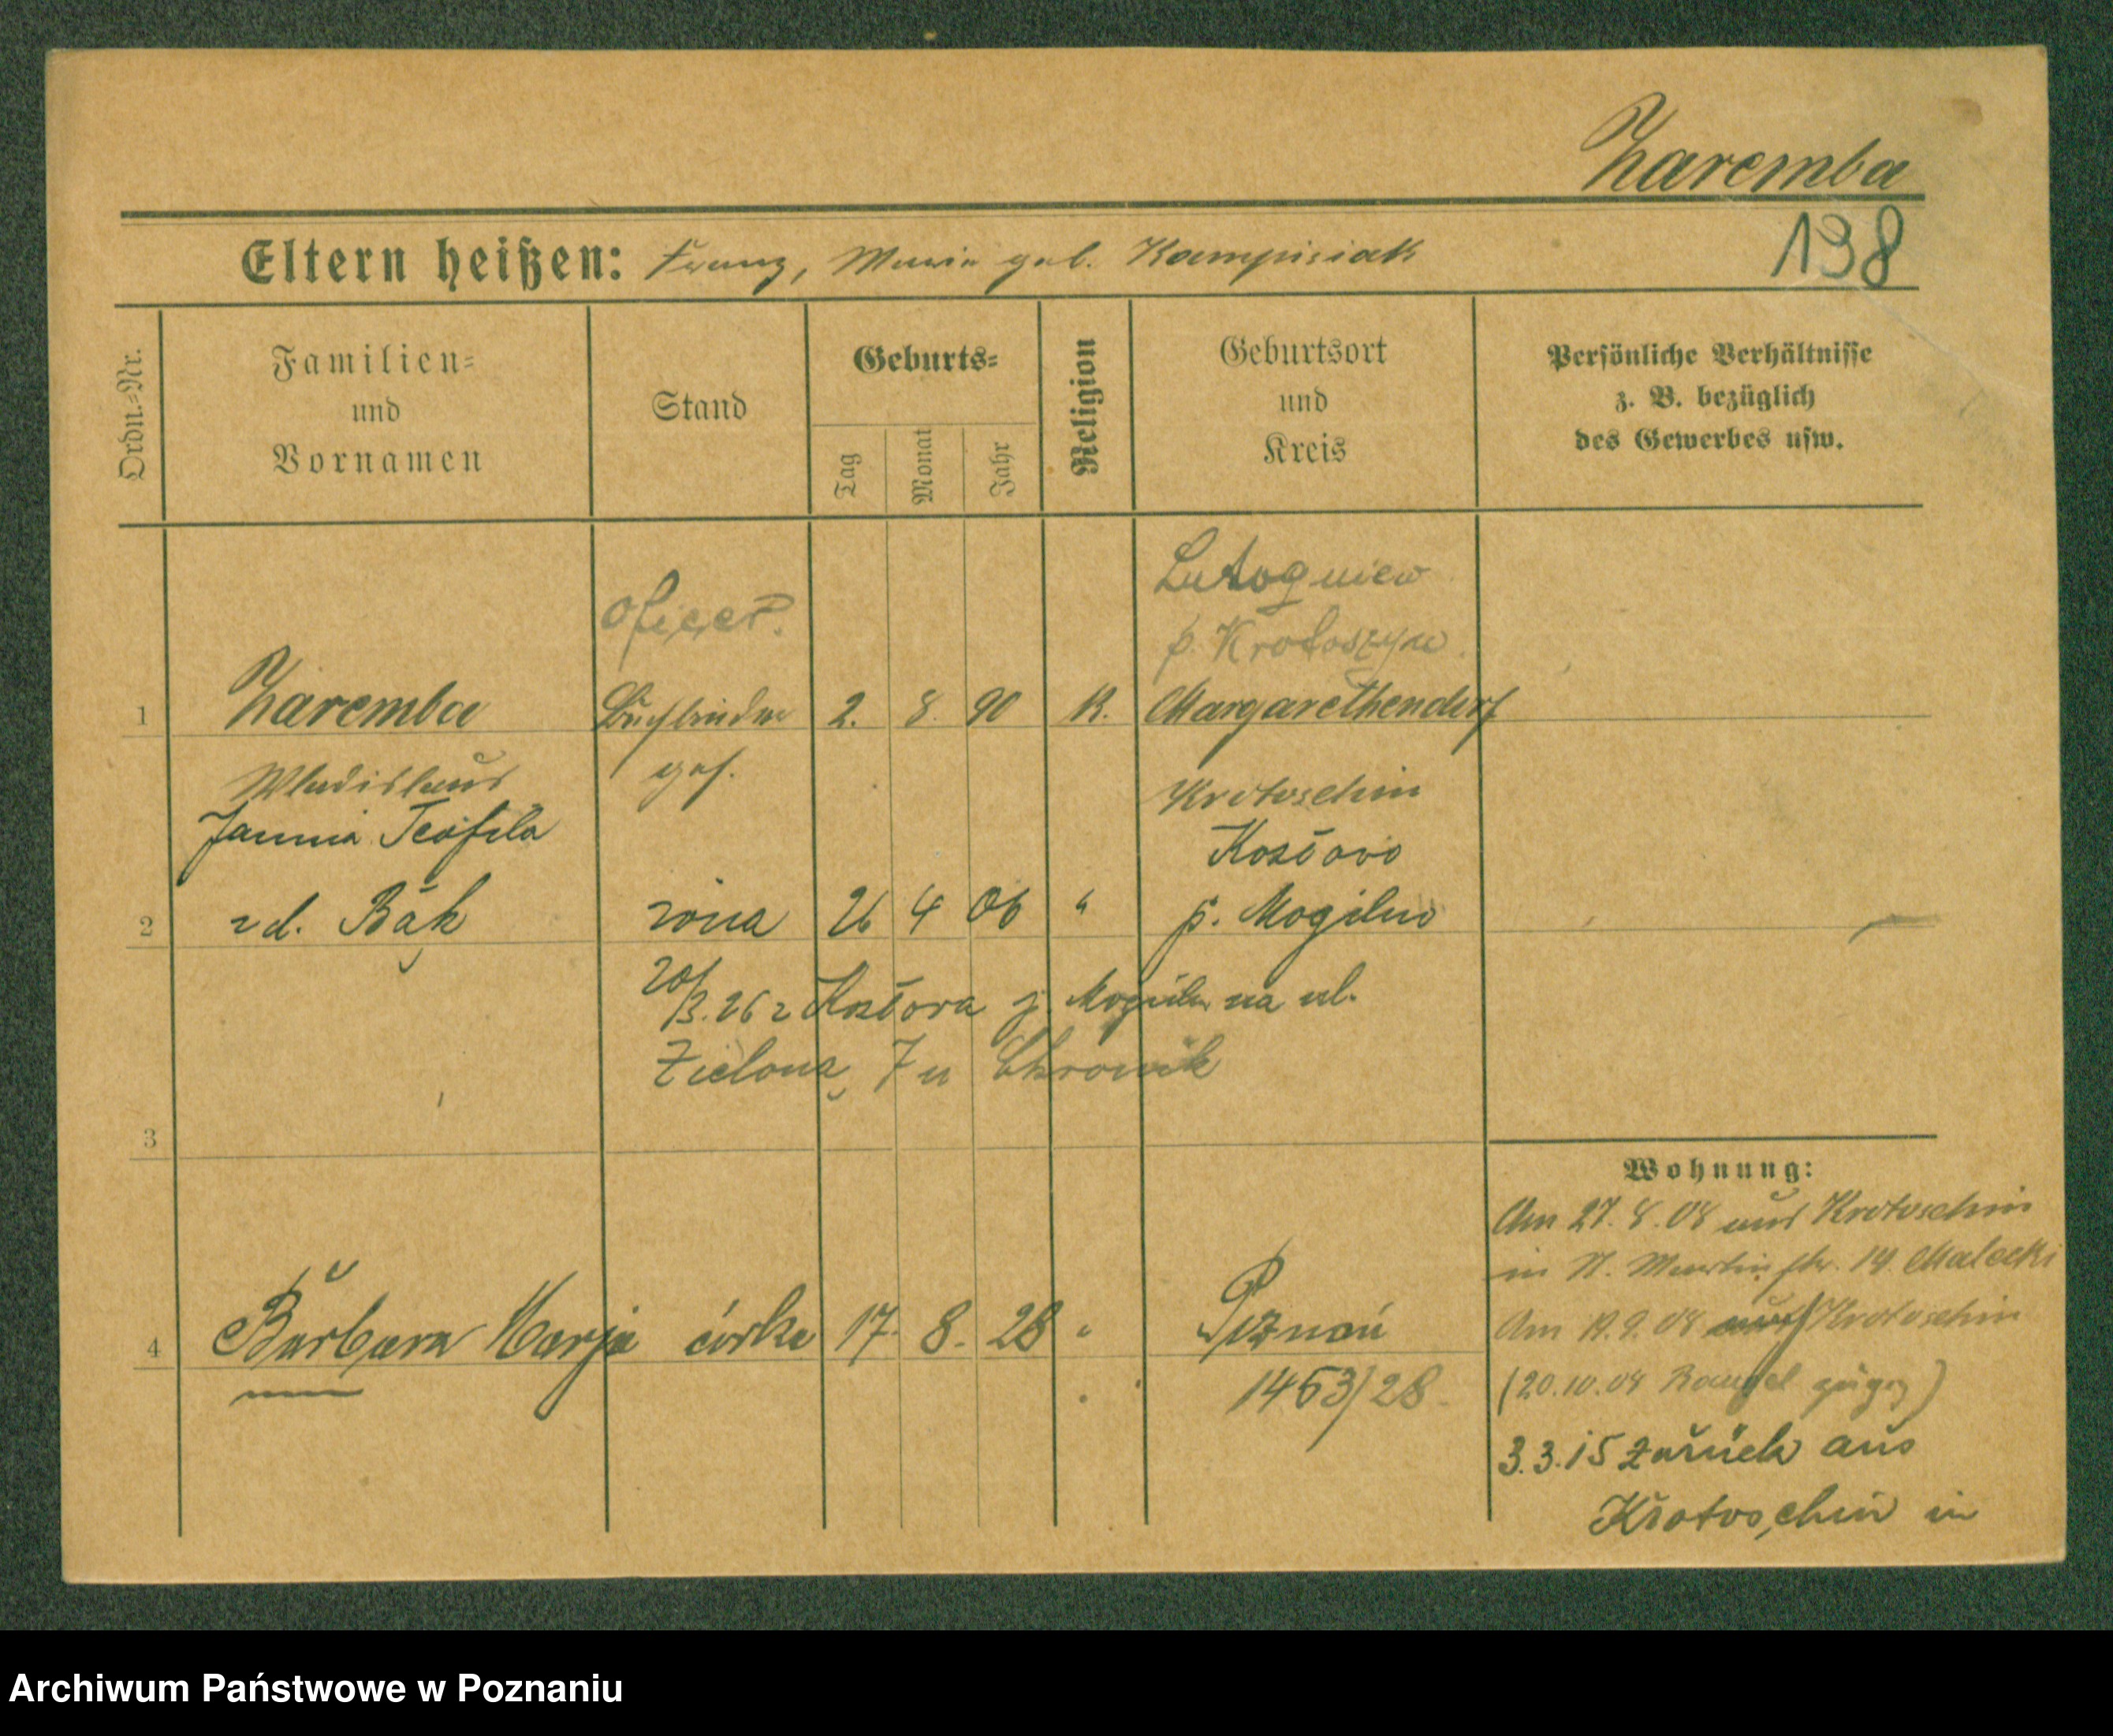 Zaremba
138
Eltern heißen: Franz, Marie geb. Kampisiak
Ordn.-Nr.
Familien-
und
Vornamen
Stand
Geburts-
Tag
Monat
Jahr
Religion
Geburtsort
und
Kreis
Persönliche Verhältnisse
z. B. bezüglich
des Gewerbes usw.
Oficer.
Lutogniew
p. Krotoszyn.
1 Zaremba Buchbinder 2. 8. 90 K. Margarethendorf
Wladislaus ges. Krotoschin
Janina Teofila
2 z d. Bąk żona 26 4 06 " p. Mogilno
20/3.26 z p. Mogilno na ul.
Zieloną 7 u
3
Wohnung:
Am 27. 8. 08 aus Krotoschin
in St. Martinstr. 14. Malecki
Am 08 Krotoschin
4 Barbara Marja córka 17. 8. 28 " Poznań
1463/28.
(20.10.08
3.3.15 zurück aus
Krotoschin in
Archiwum Państwowe w Poznaniu